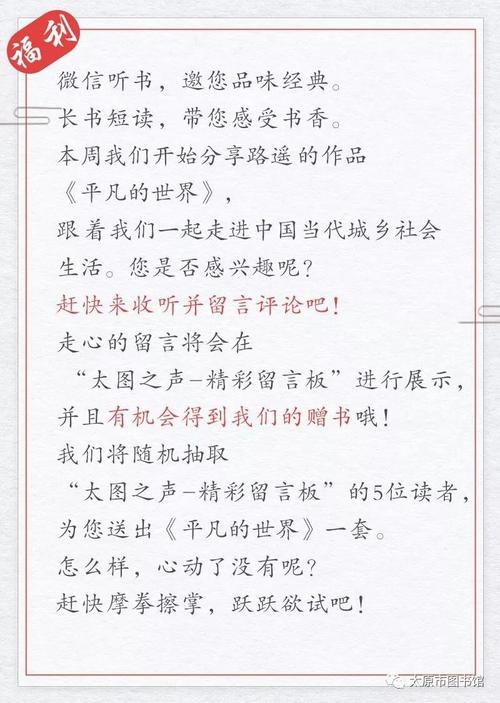 福利
微信听书，邀您品味经典。
长书短读，带您感受书香。
本周我们开始分享路遥的作品
《平凡的世界》，
跟着我们一起走进中国当代城乡社会
生活。您是否感兴趣呢？
赶快来收听并留言评论吧！
走心的留言将会在
“太图之声-精彩留言板”进行展示，
并且有机会得到我们的赠书哦！
我们将随机抽取
“太图之声-精彩留言板”的5位读者，
为您送出《平凡的世界》一套。
怎么样，心动了没有呢？
赶快摩拳擦掌，跃跃欲试吧！
太原市图书馆